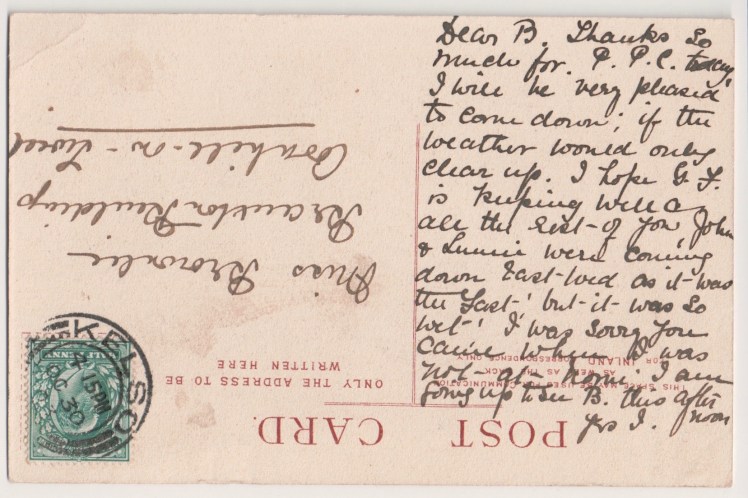 Dear B. Thanks so
much for P.P.C. today
I will be very pleased
to come down; if the
weather would only
clear up. I hope G. F.
is keeping well &
all the rest of you John
& Linnie were coming
down last Wed as it was
the 'Last', but it was so
wet! I was sorry you
came when I was
not at I am
going up to see B. this after
noon
Yrs I.
POST CARD.
THIS SPACE MAY BE USED FOR COMMUNICATION
AS WELL AS THE BACK
FOR INLAND CORRESPONDENCE ONLY
ONLY THE ADDRESS TO BE
WRITTEN HERE
Miss Brownlie
Branxton Buildings
Cornhill-on-Tweed
HALFPENNY
KELSO
4.15PM
OC 30